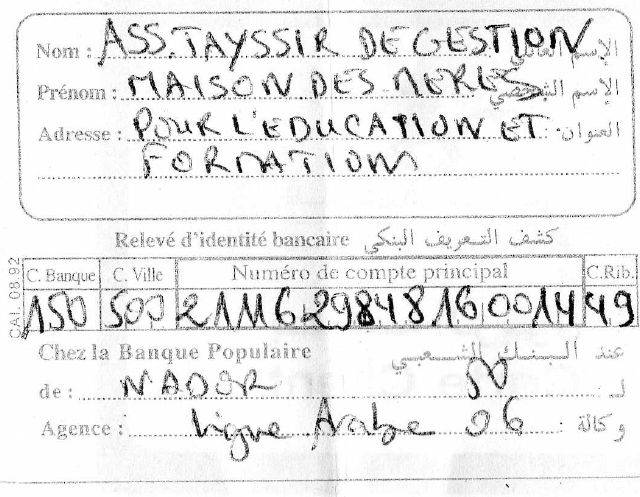 Nom : ASS. TAYSSIR DE GESTION الإسم العائلي
Prénom : MAISON DES MERES الإسم الشخصي
Adresse : POUR L'EDUCATION ET العنوان :
FORMATIOM
Relevé d'identité bancaire كشف التعريف البنكي
CAI. 08.92
C. Banque C. Ville Numéro de compte principal C.Rib.
150 500 2111629848160014 49
Chez la Banque Populaire عند البنك الشعبي
de : NADOR لـ
Agence : Ligue Arabe 06 وكالة :